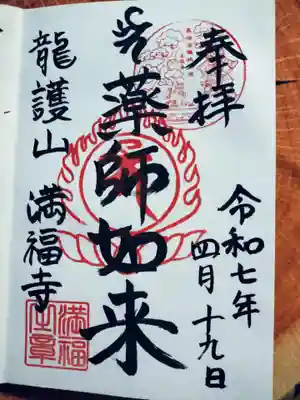 奉拝
令和七年
四月十九日
薬師如来
龍護山 満福寺
満福
寺章